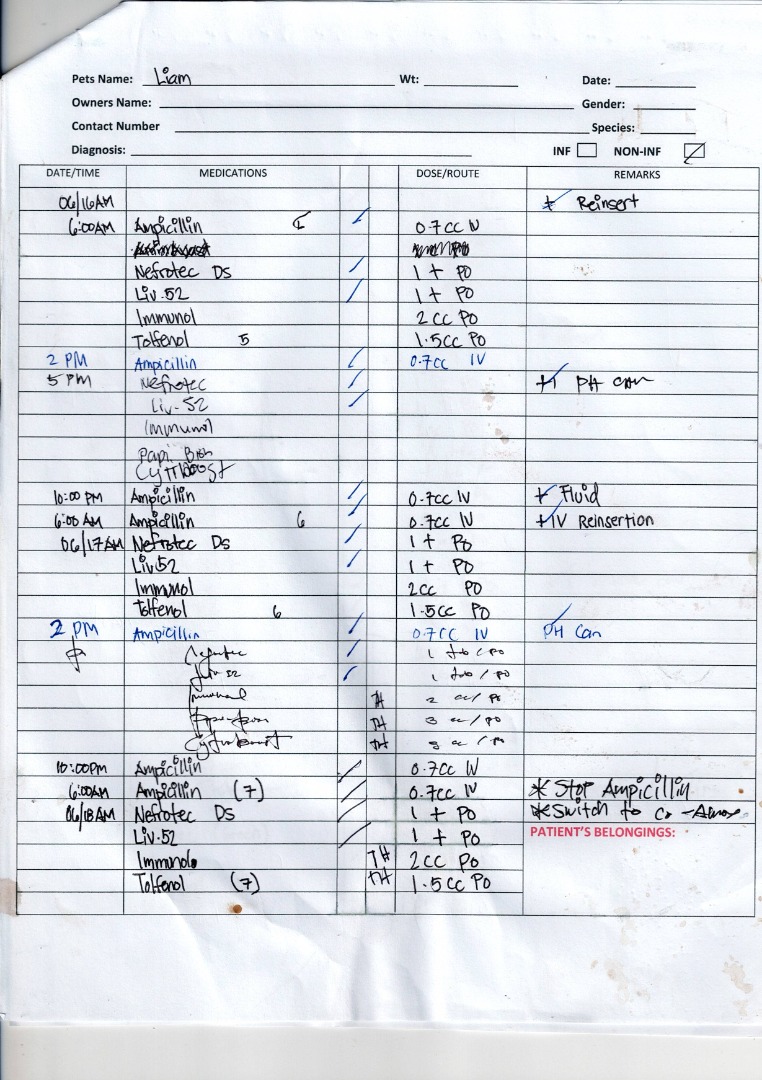 Pets Name: Liam Wt: Date:
Owners Name: Gender:
Contact Number Species:
Diagnosis: INF NON-INF
DATE/TIME MEDICATIONS DOSE/ROUTE REMARKS
06/16AM * Reinsert
6:00AM Ampicillin 0.7cc IV
Nefrotec Ds 1 + PO
Liv.52 1 + PO
Immunol 2 cc PO
Tolfenol 5 1.5cc PO
2 PM Ampicillin 0.7cc IV
5 PM Nefrotec PH can
Liv-52
Immunol
Papi
10:00 PM Ampicillin 0.7cc IV + Fluid
6:00 AM Ampicillin 6 0.7cc IV + IV Reinsertion
06/17AM Nefrotec Ds 1 + PO
Liv52 1 + PO
Immunol 2cc PO
Tolfenol 6 1.5cc PO
2 PM Ampicillin 0.7cc IV PH Can
1 tab / po
1 tab / po
TH 2 cc / po
TH 3 cc / po
TH 3 cc / po
10:00PM Ampicillin 0.7cc IV
6:00AM Ampicillin (7) 0.7cc IV * Stop Ampicillin
06/18AM Nefrotec Ds 1 + PO * Switch to Co-Amox
Liv.52 1 + PO PATIENT'S BELONGINGS:
Immunol TH 2cc PO
Tolfenol (7) TH 1.5cc PO